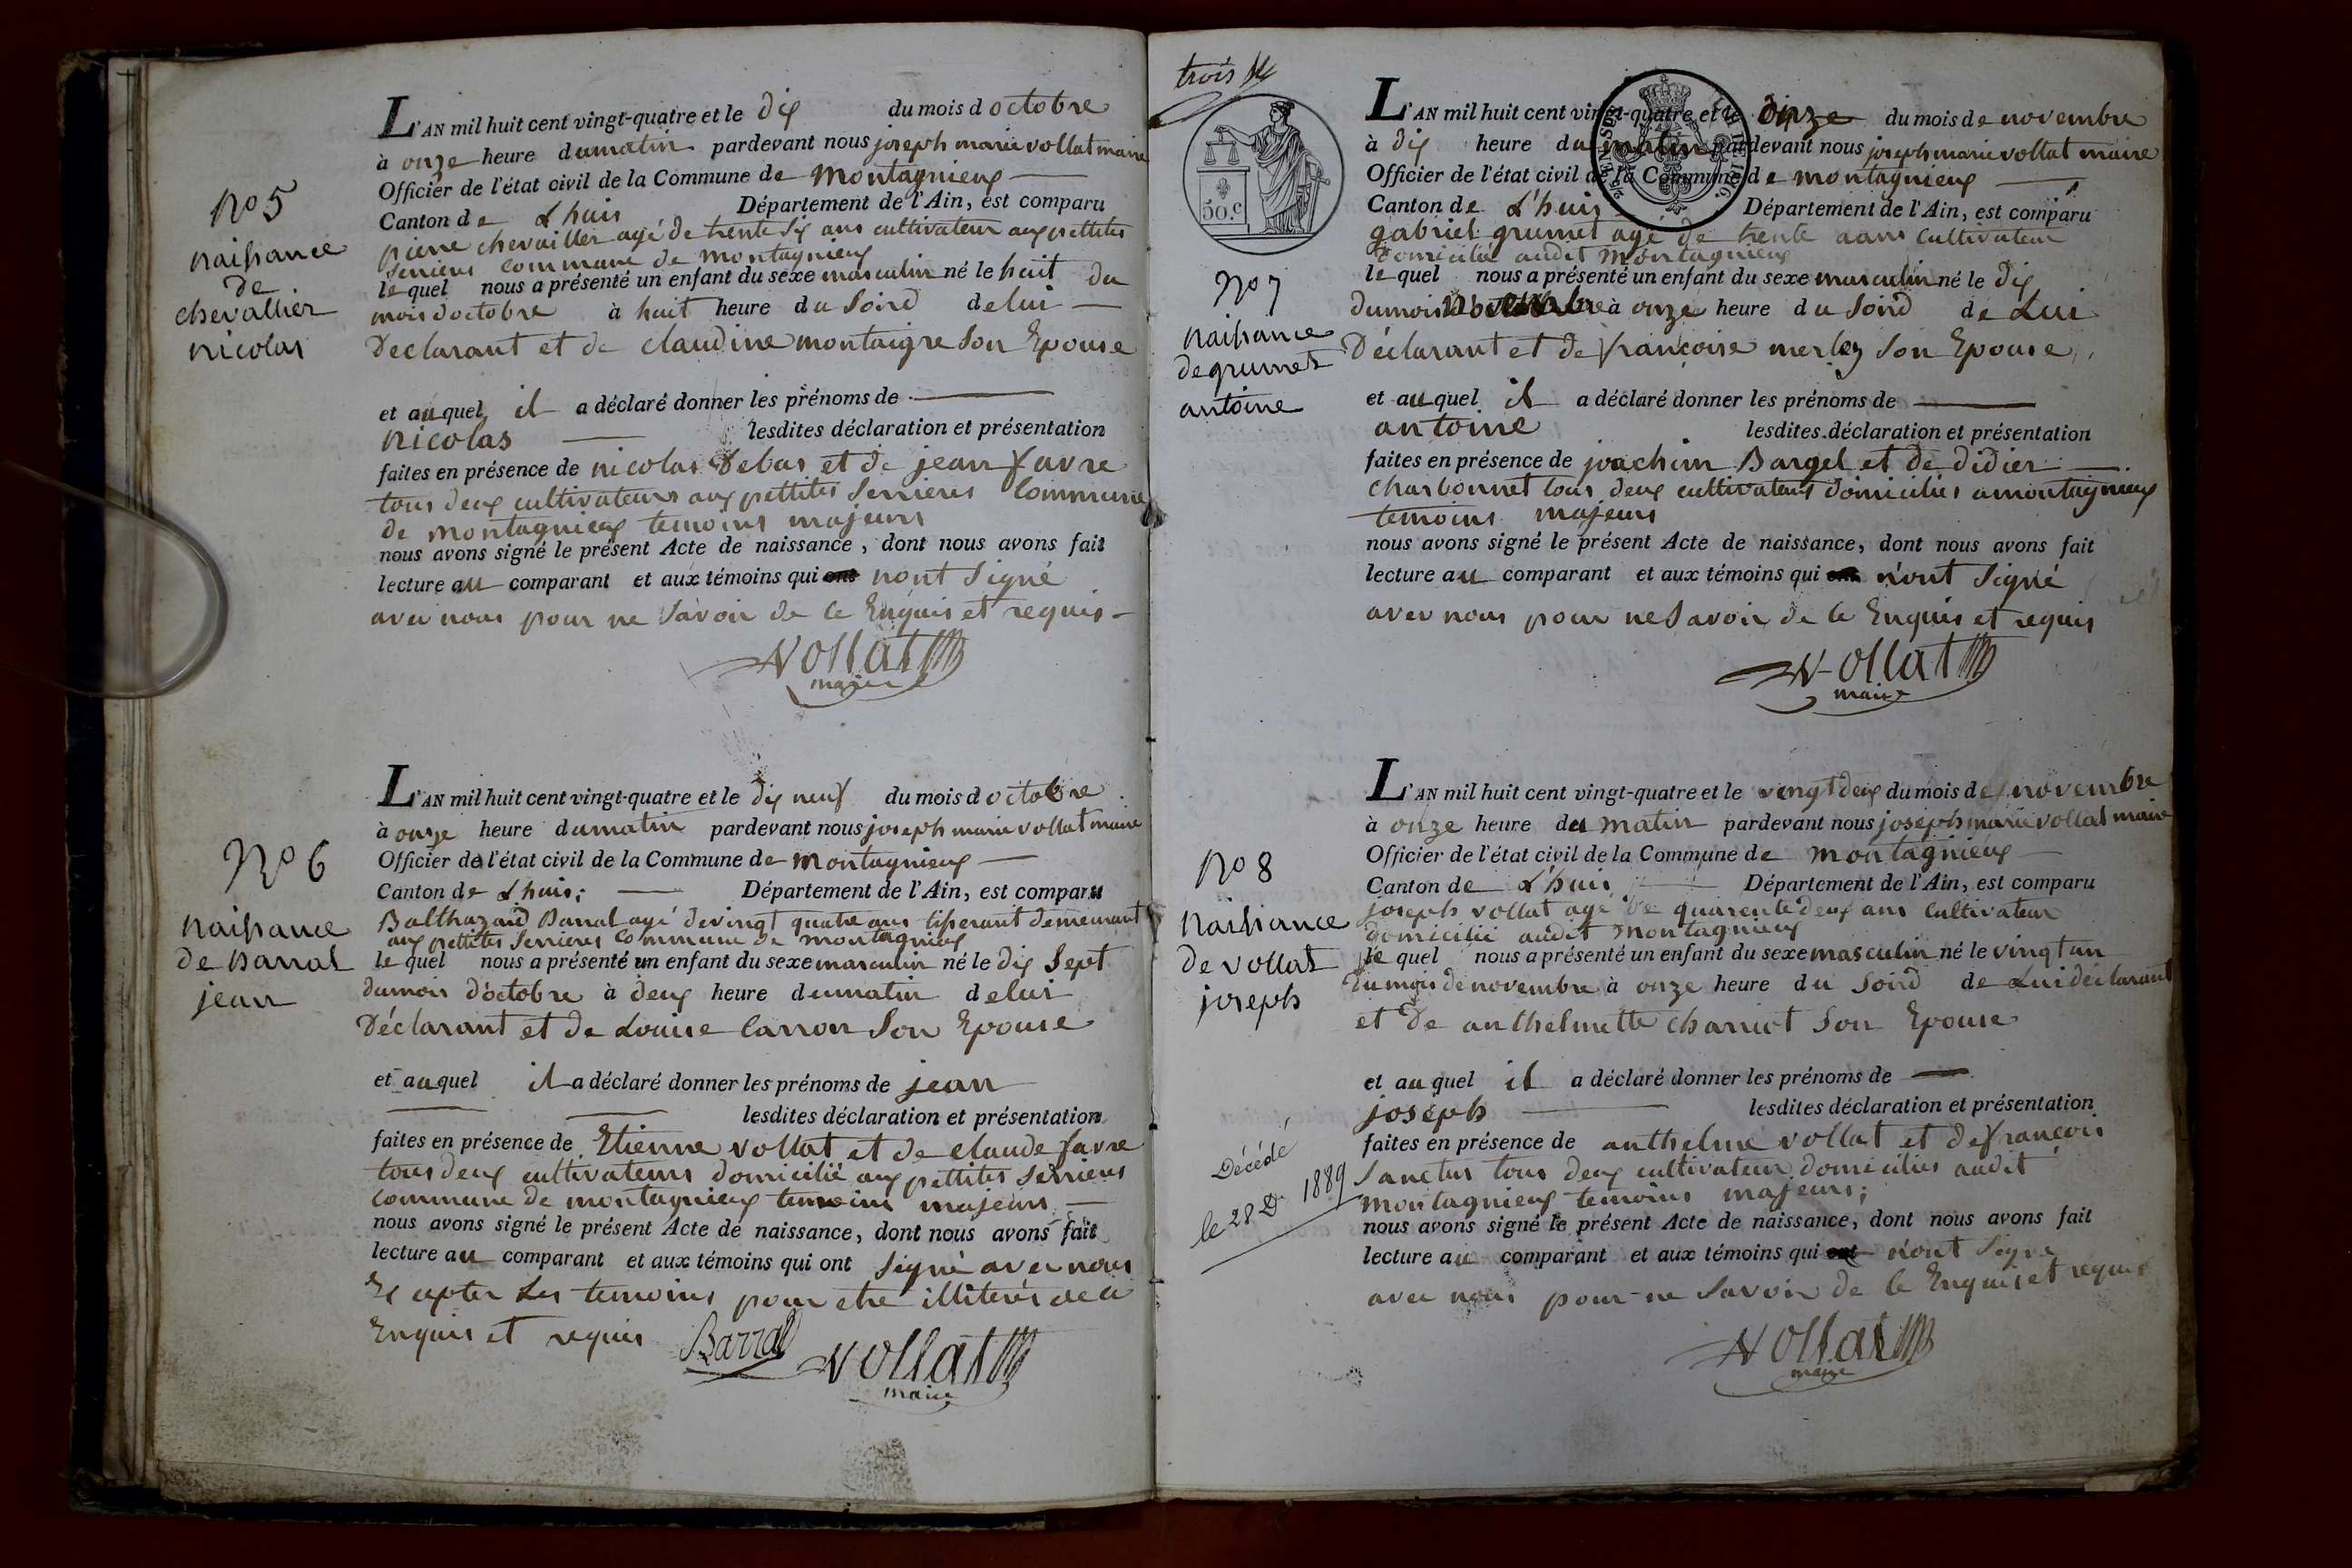 No 5
naissance
de
chevallier
nicolas
L'AN mil huit cent vingt-quatre et le dix du mois d octobre
à onze heure du matin pardevant nous joseph marie vollat maire
Officier de l'état civil de la Commune de Montagnieux
Canton de Lhuis Département de l'Ain, est comparu
pierre chevallier agé de trente six ans cultivateur aux pettites
Serrieres commune de montagnieux
le quel nous a présenté un enfant du sexe masculin né le huit du
mois doctobre à huit heure du Soird de lui
Declarant et de claudine montaigre Son Epouse
et au quel il a déclaré donner les prénoms de
nicolas lesdites déclaration et présentation
faites en présence de nicolas Debas et de jean favre
tous deux cultivateurs aux pettites Serrieres Commune
de montagnieux temoins majeurs
nous avons signé le présent Acte de naissance, dont nous avons fait
lecture au comparant et aux témoins qui nont Signé
avec nous pour ne Savoir de ce Enquis et requis
Vollat
maire
No 6
naissance
de Barral
jean
L'AN mil huit cent vingt-quatre et le dix neuf du mois d octobre
à onze heure du matin pardevant nous joseph marie vollat maire
Officier de l'état civil de la Commune de Montagnieux
Canton de Lhuis; Département de l'Ain, est comparu
Balthazard Barral agé de vingt quatre ans tisserant demeurant
aux pettites Serrieres Commune de montagnieux
le quel nous a présenté un enfant du sexe masculin né le dix Sept
du mois d'octobre à deux heure du matin de lui
Déclarant et de Louise Carron Son Epouse
et au quel il a déclaré donner les prénoms de jean
lesdites déclaration et présentation
faites en présence de Etienne vollat et de claude favre
tous deux cultivateurs domicilié aux pettites Serrieres
Commune de montagnieux temoins majeurs
nous avons signé le présent Acte de naissance, dont nous avons fait
lecture au comparant et aux témoins qui ont Signé avec nous
Excepter Les temoins pour etre illiterés de ce
Enquis et requis Barral Vollat
maire
trois
50.c
No 7
naissance
de grumet
antoine
L'AN mil huit cent vingt-quatre et le onze du mois de novembre
à dix heure du matin pardevant nous joseph marie vollat maire
Officier de l'état civil de la Commune de montagnieux
Canton de L'huis Département de l'Ain, est comparu
gabriel grumet agé de trente aans Cultivateur
domicilié audit montagnieux
le quel nous a présenté un enfant du sexe masculin né le dix
du mois Novembre à onze heure du Soird de Lui
Déclarant et de françoise merley Son Epouse
et au quel il a déclaré donner les prénoms de
antoine lesdites déclaration et présentation
faites en présence de joachim Bargel et de didier
charbonnet tous deux cultivateurs domiciliés a montagnieux
temoins majeurs
nous avons signé le présent Acte de naissance, dont nous avons fait
lecture au comparant et aux témoins qui n'ont Signé
avec nous pour ne Savoir de ce Enquis et requis
Vollat
maire
No 8
Naissance
de vollat
joseph
Décédé
le 28 D 1889
L'AN mil huit cent vingt-quatre et le vingt deux du mois de novembre
à onze heure du matin pardevant nous joseph marie vollat maire
Officier de l'état civil de la Commune de montagnieux
Canton de L'huis Département de l'Ain, est comparu
joseph vollat agé de quarente deux ans Cultivateur
domicilié audit montagnieux
le quel nous a présenté un enfant du sexe masculin né le vingt un
du mois de novembre à onze heure du Soird de Lui déclarant
et de anthelmette charriot Son Epouse
et au quel il a déclaré donner les prénoms de
joseph lesdites déclaration et présentation
faites en présence de anthelme vollat et de françois
Sanctus tous deux cultivateur domiciliés audit
montagnieux temoins majeurs;
nous avons signé le présent Acte de naissance, dont nous avons fait
lecture au comparant et aux témoins qui n'ont Signé
avec nous pour ne Savoir de ce Enquis et requis
Vollat
maire